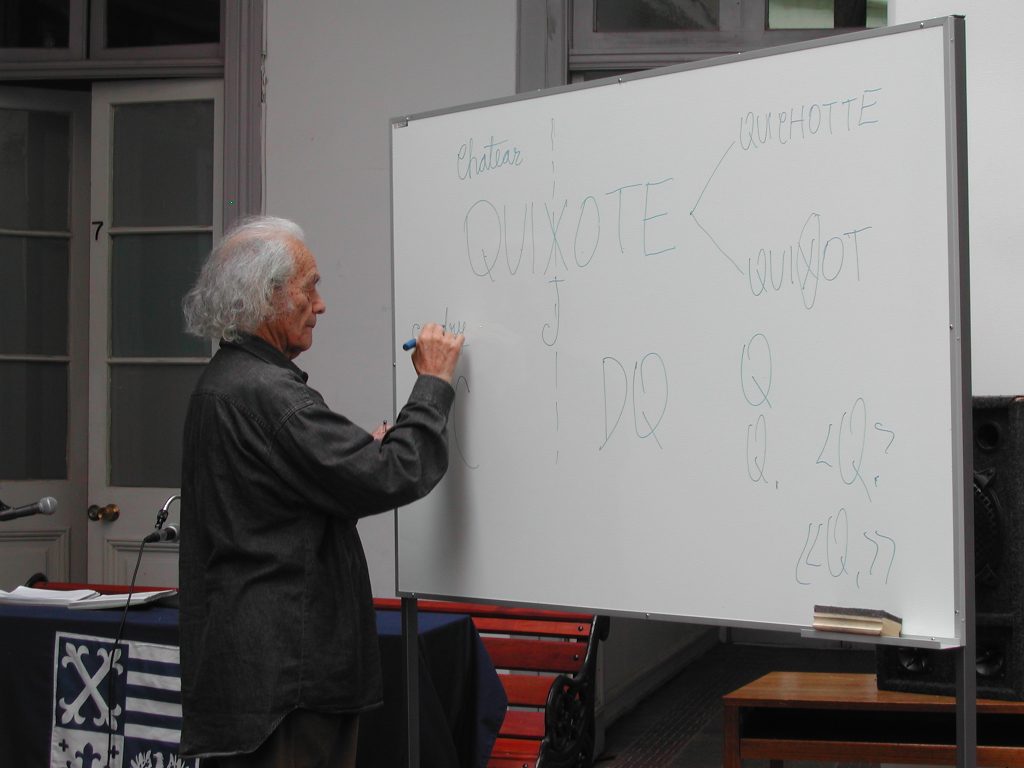 7
Chatear
QUIXOTE
QUICHOTTE
QUIXOT
J
DQ
Q
Q.
<Q.>
<<Q.>>